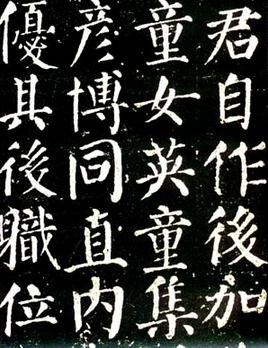 君自作後加
童女英童集
彦博同直内
優其後職位